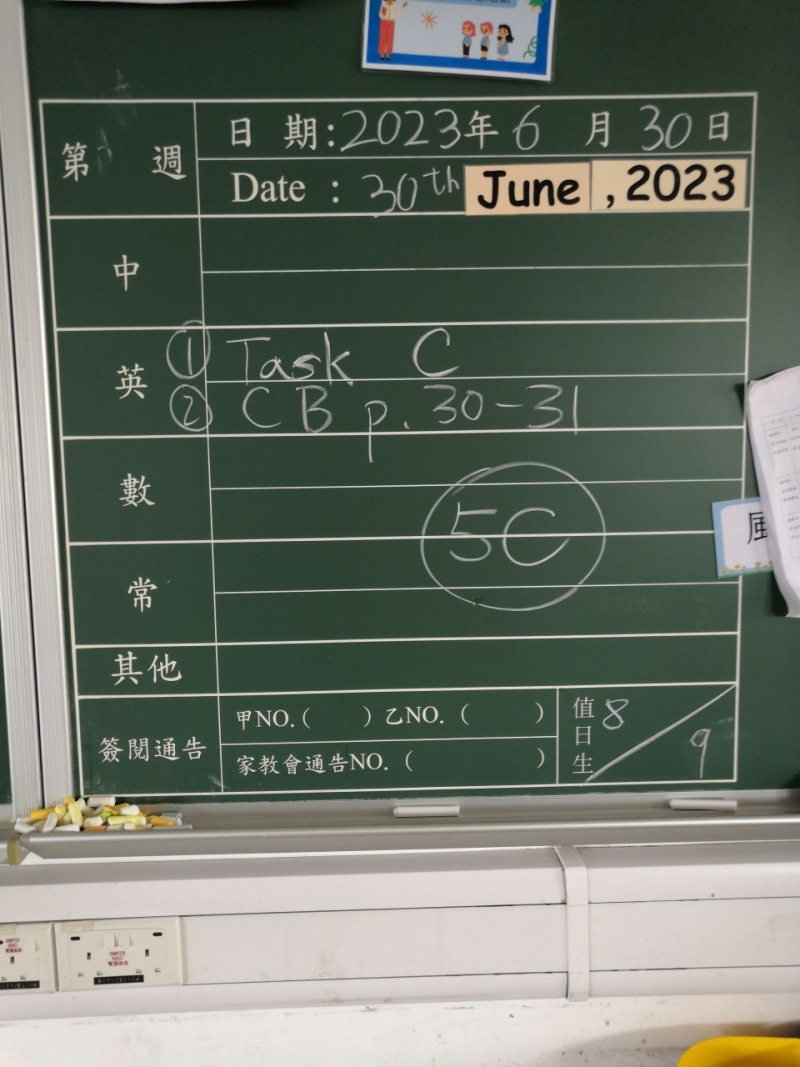 第 週
日 期:2023年 6 月 30日
Date : 30th June , 2023
中
英
① Task C
② CB p. 30-31
數
5C
常
其他
簽閱通告
甲NO.( ) 乙NO. ( )
家教會通告NO. ( )
值日生
8 / 9
風
COMPUTER SOCKET